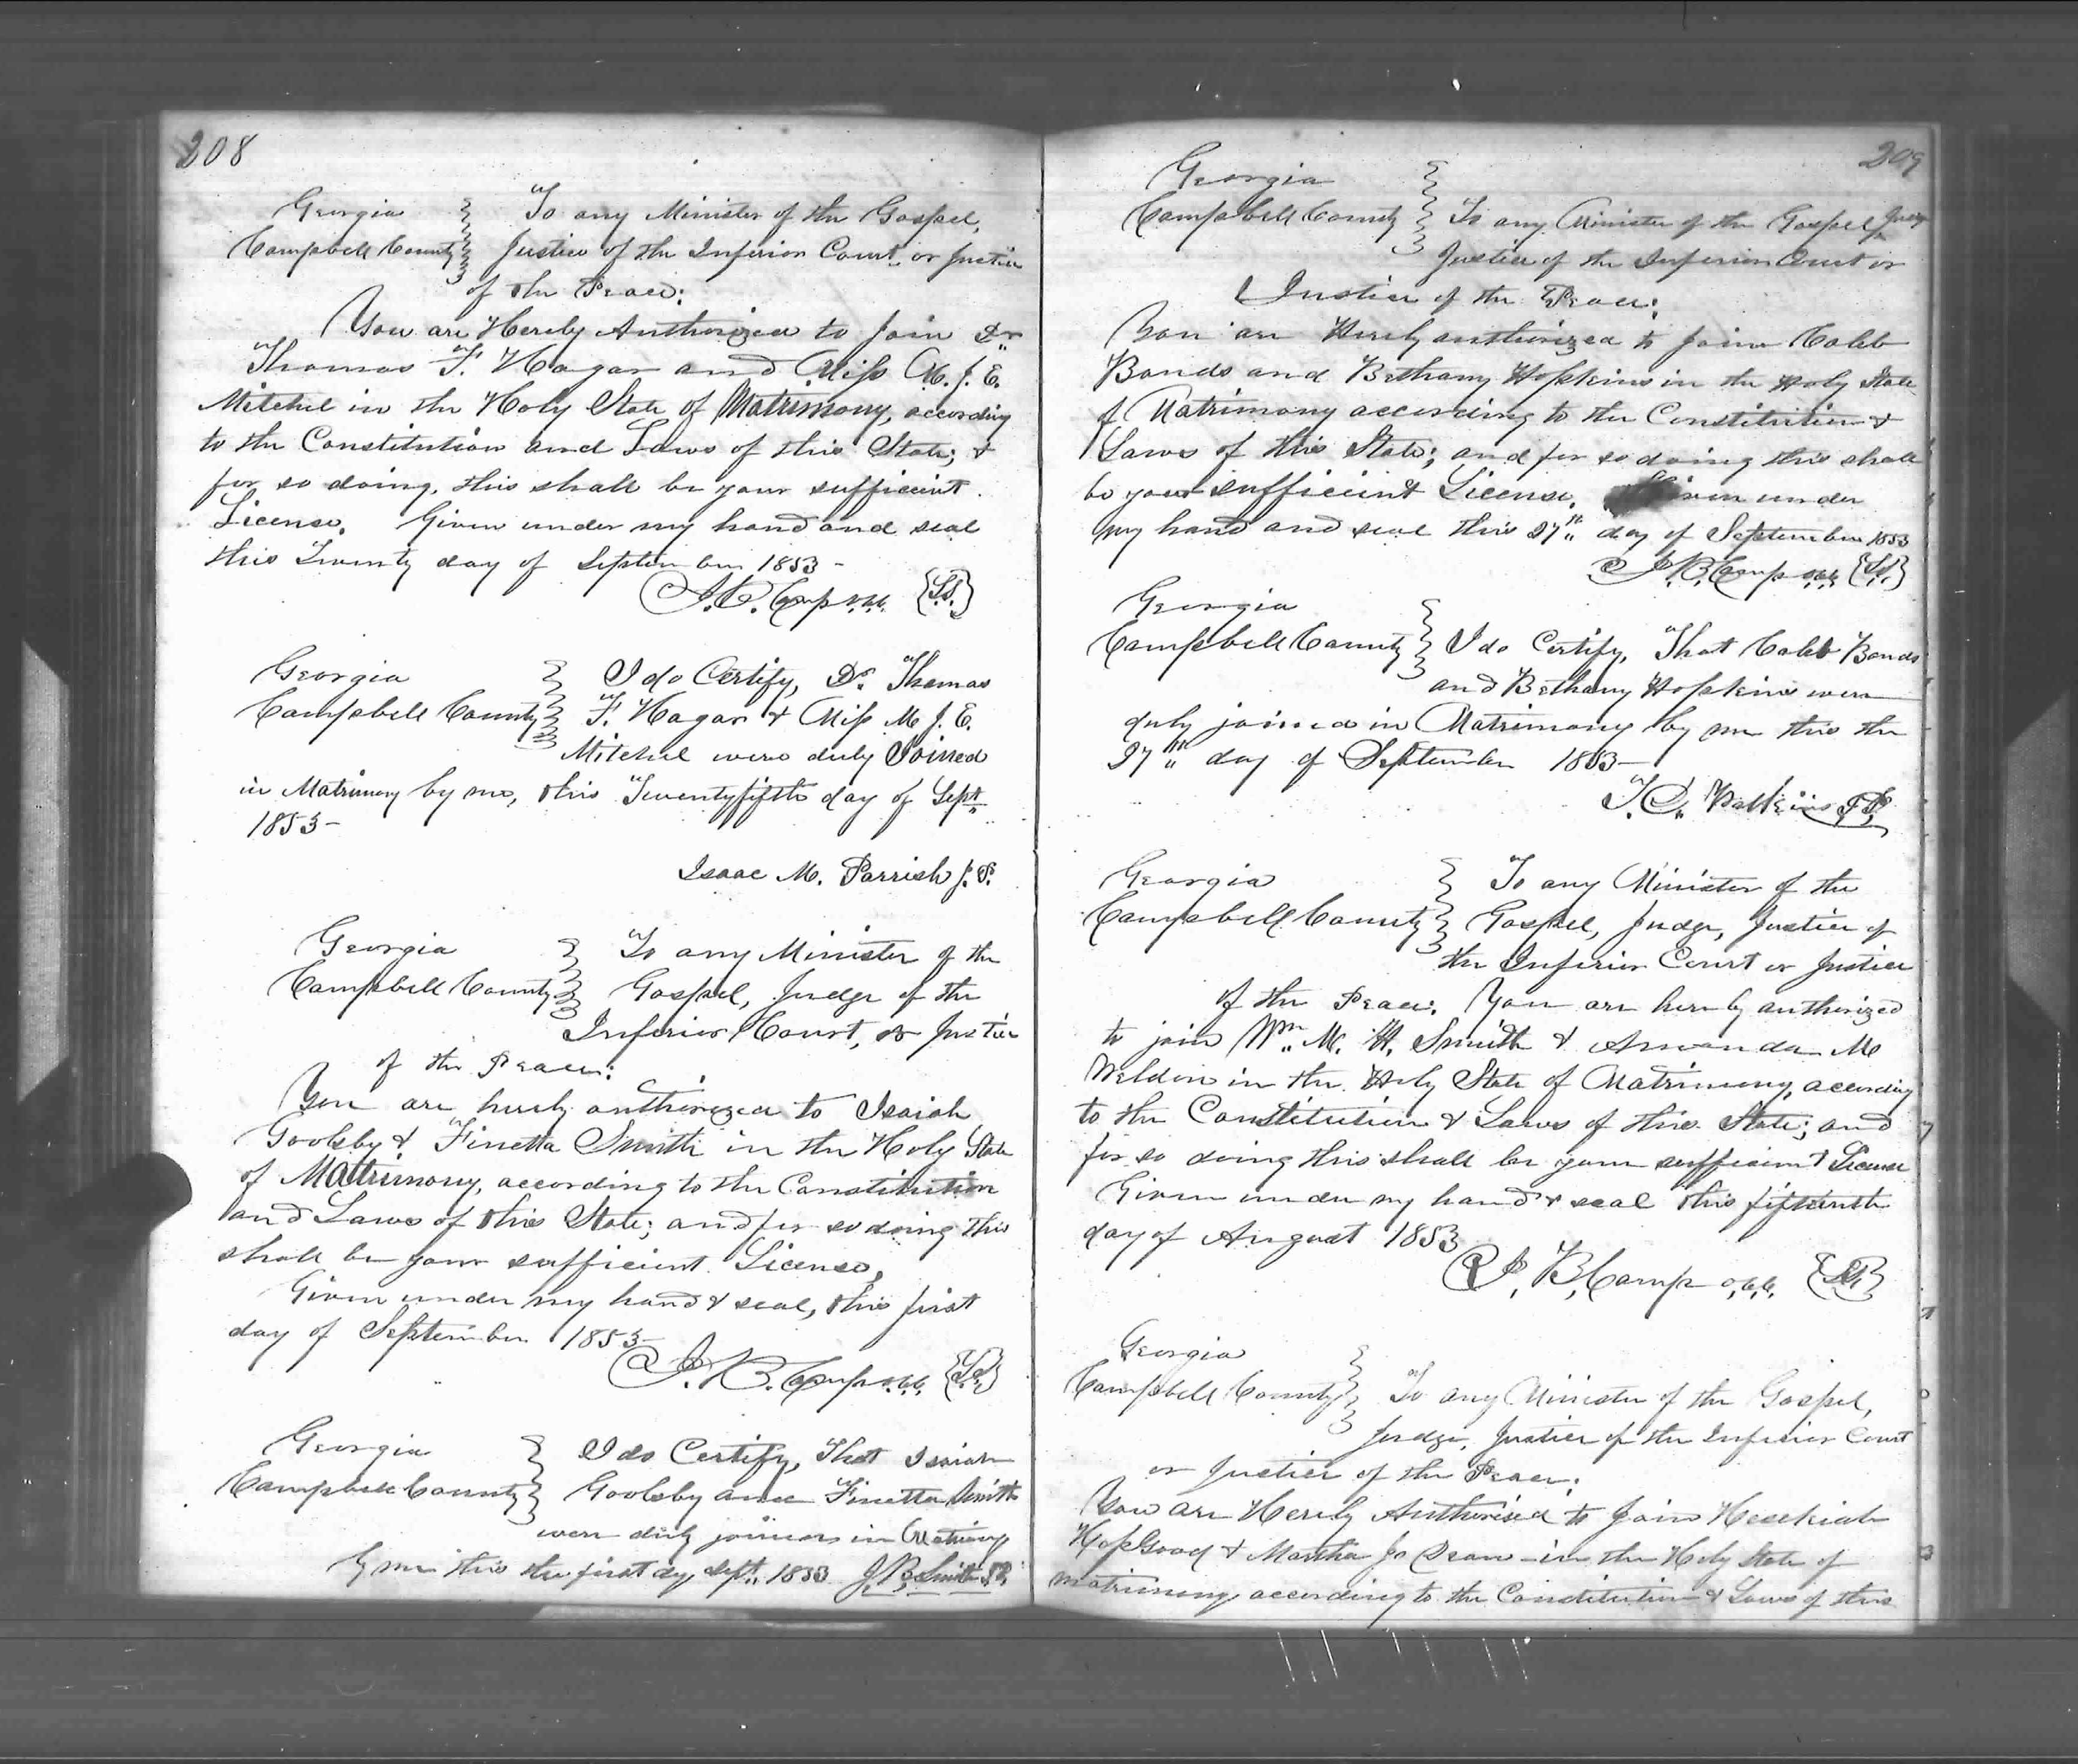 208
Georgia } To any Minister of the Gospel,
Campbell County } Justice of the Inferior Court, or Justice
of the Peace:
You are Hereby Authorized to Join Dr
Thomas F. Hagar and Miss M. J. E.
Mitchel in the Holy State of Matrimony, according
to the Constitution and Laws of this State; &
for so doing, this shall be your sufficient
License. Given under my hand and seal
this Twenty day of September 1853 -
J. B. Camp c.c.o. {L.S.}
Georgia } I do Certify, Dr. Thomas
Campbell County } F. Hagar & Miss M. J. E.
Mitchel were duly Joined
in Matrimony by me, this Twentyfifth day of Sept
1853-
Isaac M. Parrish J. P.
Georgia } To any Minister of the
Campbell County } Gospel, Judge of the
Inferior Court, or Justice
of the Peace:
You are hereby authorized to Isaiah
Goolsby & Finetta Smith in the Holy State
of Matrimony, according to the Constitution
and Laws of this State; and for so doing this
shall be your sufficient License.
Given under my hand & seal, this first
day of September 1853-
J. B. Camp c.c.o. {L.S.}
Georgia } I do Certify, That Isaiah
Campbell County } Goolsby and Finetta Smith
were duly joined in Matrimony
by me this the first day Sept. 1853 J. B. Smith J.P.
209
Georgia
Campbell County } To any Minister of the Gospel,
Justice of the Inferior Court or
Justice of the Peace:
You are Hereby authorized to join Caleb
Bonds and Bethany Hopkins in the Holy State
of Matrimony according to the Constitution &
Laws of this State; and for so doing this shall
be your sufficient License. Given under
my hand and seal this 27th day of September 1853
J. B. Camp c.c.o. {L.S.}
Georgia
Campbell County } I do Certify, That Caleb Bonds
and Bethany Hopkins were
duly joined in Matrimony by me this the
27th day of September 1853-
T. C. Watkins J.P.
Georgia } To any Minister of the
Campbell County } Gospel, Judge, Justice of
the Inferior Court or Justice
of the Peace. You are hereby authorized
to join Wm. M. H. Smith & Amanda M
Weldon in the Holy State of Matrimony, according
to the Constitution & Laws of this State; and
for so doing this shall be your sufficient License
Given under my hand & seal this fifteenth
day of August 1853
J. B. Camp c.c.o. {L.S.}
Georgia
Campbell County } To any Minister of the Gospel,
Judge, Justice of the Inferior Court
or Justice of the Peace:
You are Hereby Authorised to Join Hesekiah
HopGood & Martha Jo Dean in the Holy State of
matrimony according to the Constitution & Laws of this